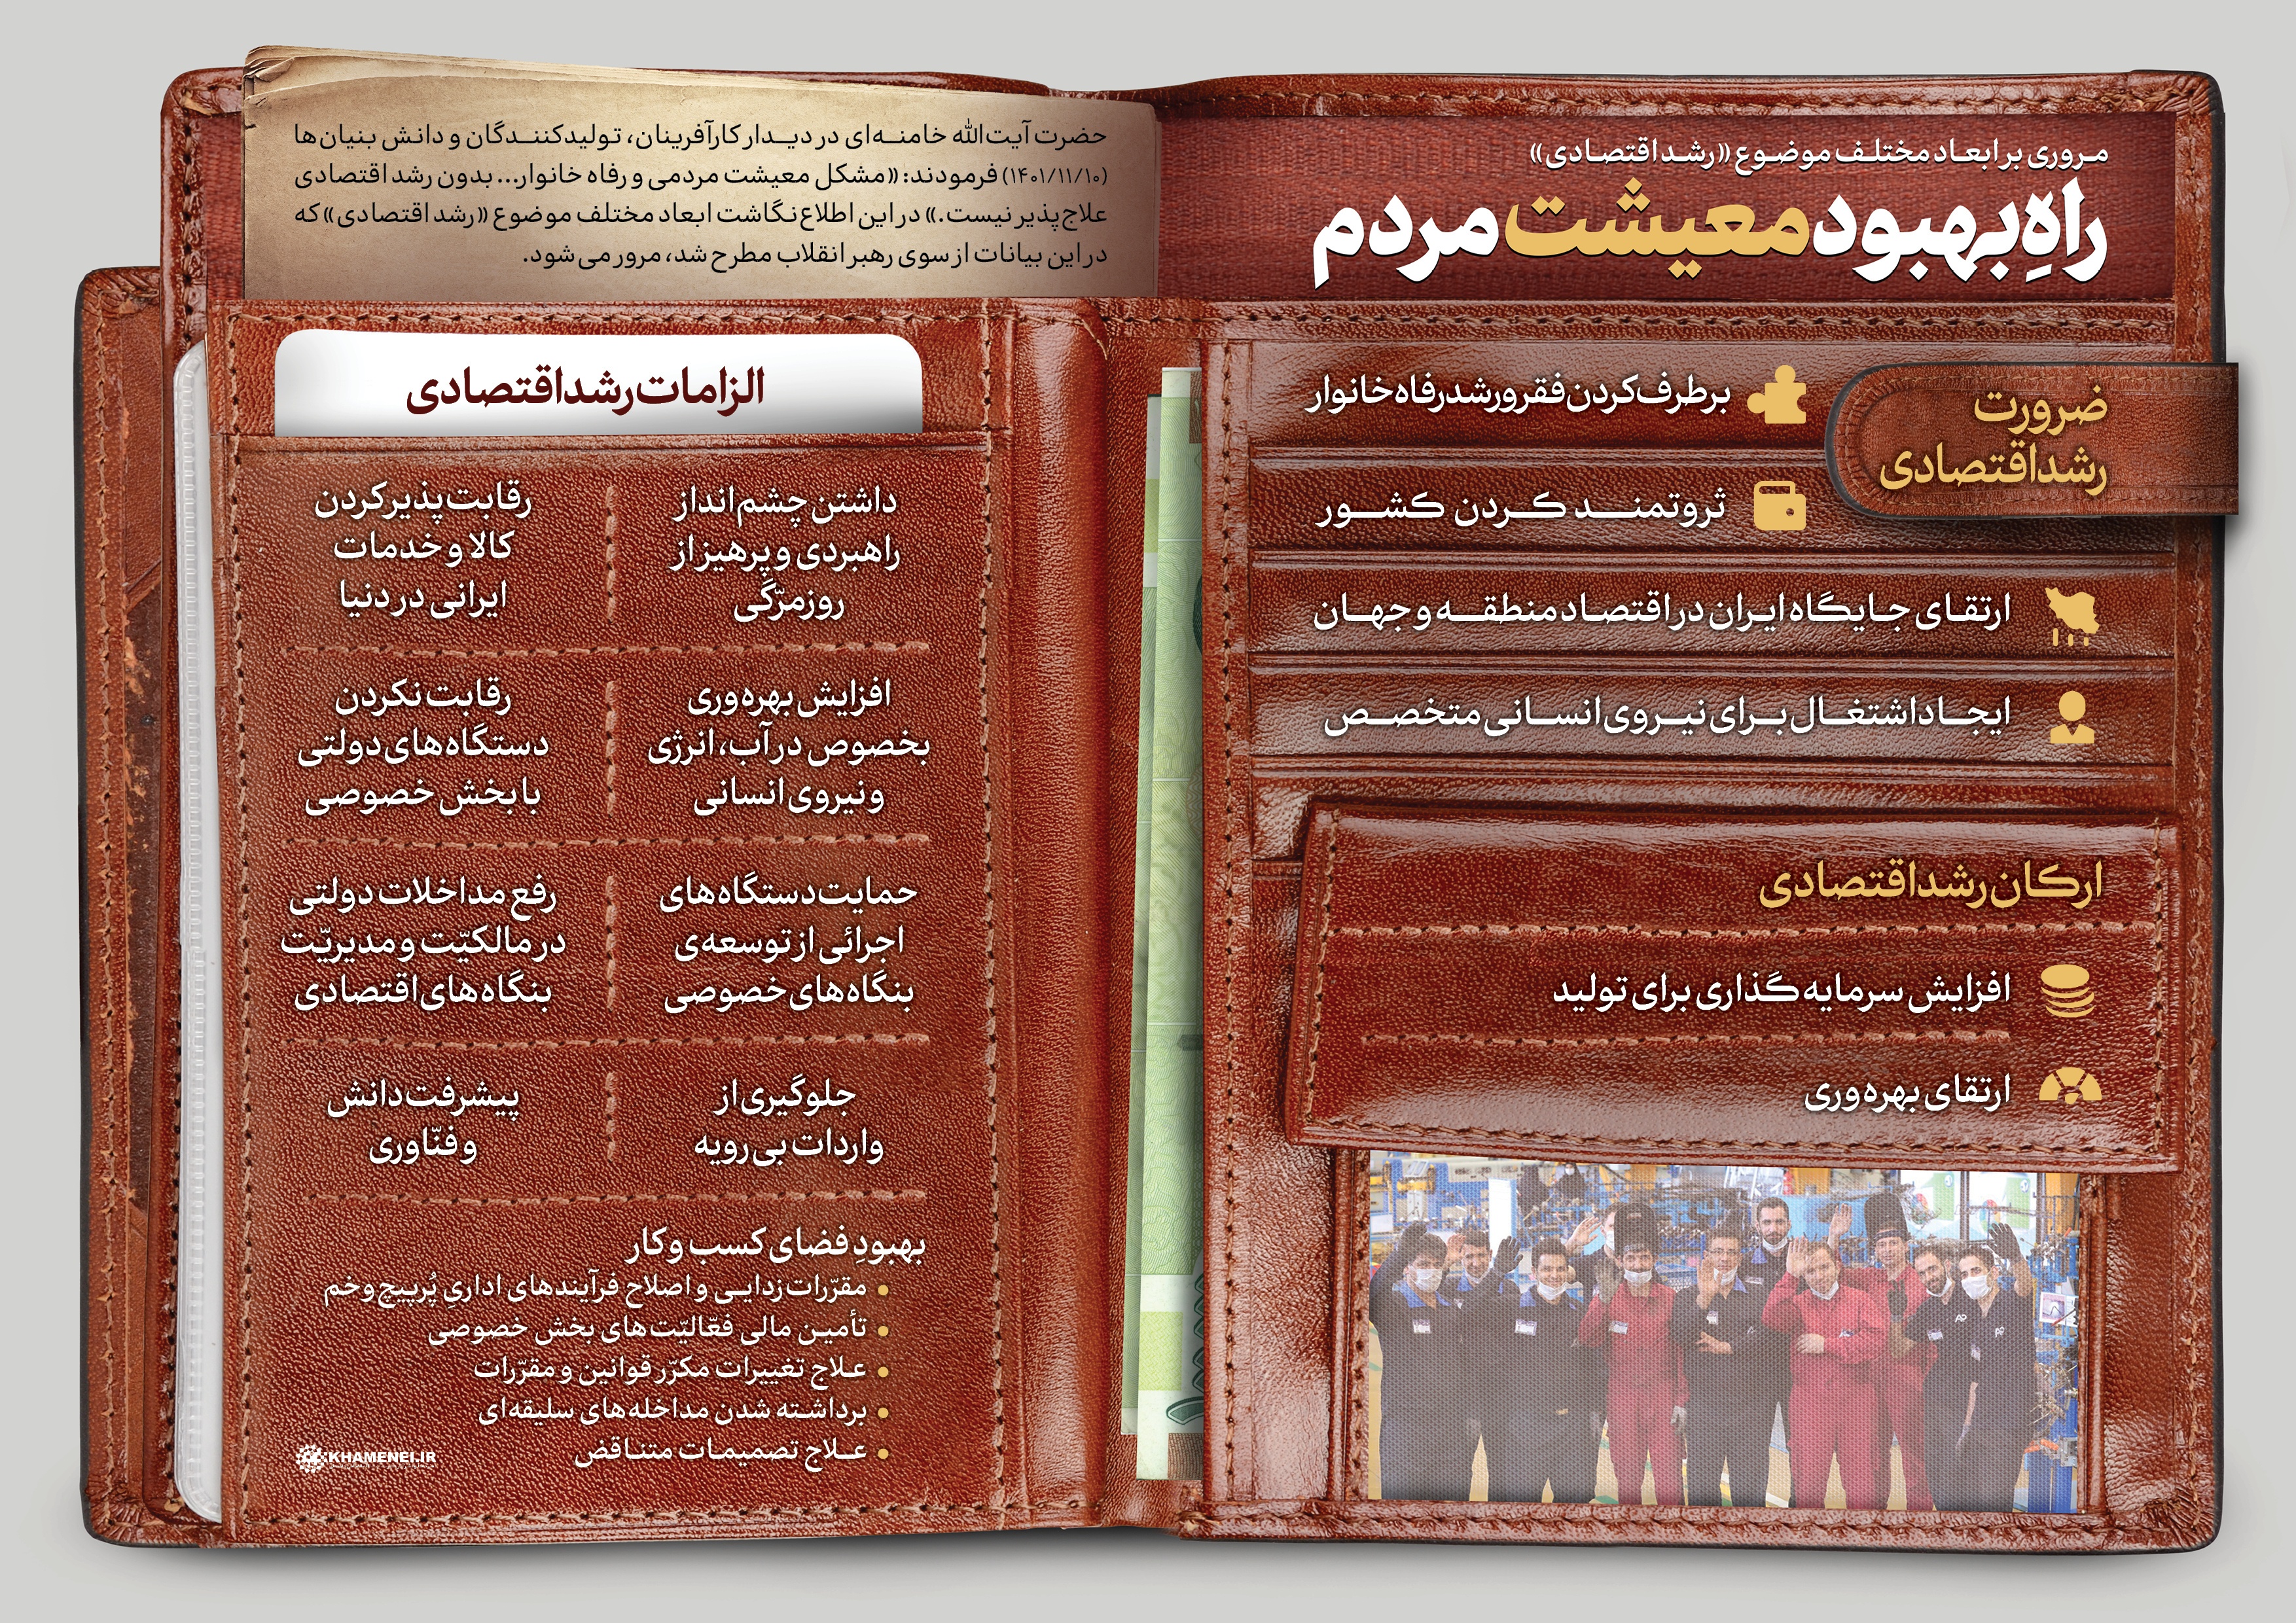 مروری بر ابعاد مختلف موضوع «رشد اقتصادی»
راهِ بهبود معیشت مردم
حضرت آیت‌الله خامنه‌ای در دیدار کارآفرینان، تولیدکنندگان و دانش بنیان‌ها
(۱۴۰۱/۱۱/۱۰) فرمودند: «مشکل معیشت مردمی و رفاه خانوار... بدون رشد اقتصادی
علاج‌پذیر نیست.» در این اطلاع‌نگاشت ابعاد مختلف موضوع «رشد اقتصادی» که
در این بیانات از سوی رهبر انقلاب مطرح شد، مرور می‌شود.
ضرورت
رشد اقتصادی
برطرف کردن فقر و رشد رفاه خانوار
ثروتمند کردن کشور
ارتقای جایگاه ایران در اقتصاد منطقه و جهان
ایجاد اشتغال برای نیروی انسانی متخصص
ارکان رشد اقتصادی
افزایش سرمایه‌گذاری برای تولید
ارتقای بهره‌وری
الزامات رشد اقتصادی
داشتن چشم‌انداز
راهبردی و پرهیز از
روزمرّگی
رقابت‌پذیر کردن
کالا و خدمات
ایرانی در دنیا
افزایش بهره‌وری
بخصوص در آب، انرژی
و نیروی انسانی
رقابت نکردن
دستگاه‌های دولتی
با بخش خصوصی
حمایت دستگاه‌های
اجرائی از توسعه‌ی
بنگاه‌های خصوصی
رفع مداخلات دولتی
در مالکیّت و مدیریّت
بنگاه‌های اقتصادی
جلوگیری از
واردات بی‌رویه
پیشرفت دانش
و فنّاوری
بهبودِ فضای کسب و کار
• مقرّرات‌زدایی و اصلاح فرآیندهای اداریِ پُرپیچ‌وخم
• تأمین مالی فعّالیّت‌های بخش خصوصی
• علاج تغییرات مکرّر قوانین و مقرّرات
• برداشته شدن مداخله‌های سلیقه‌ای
• علاج تصمیمات متناقض
KHAMENEI.IR